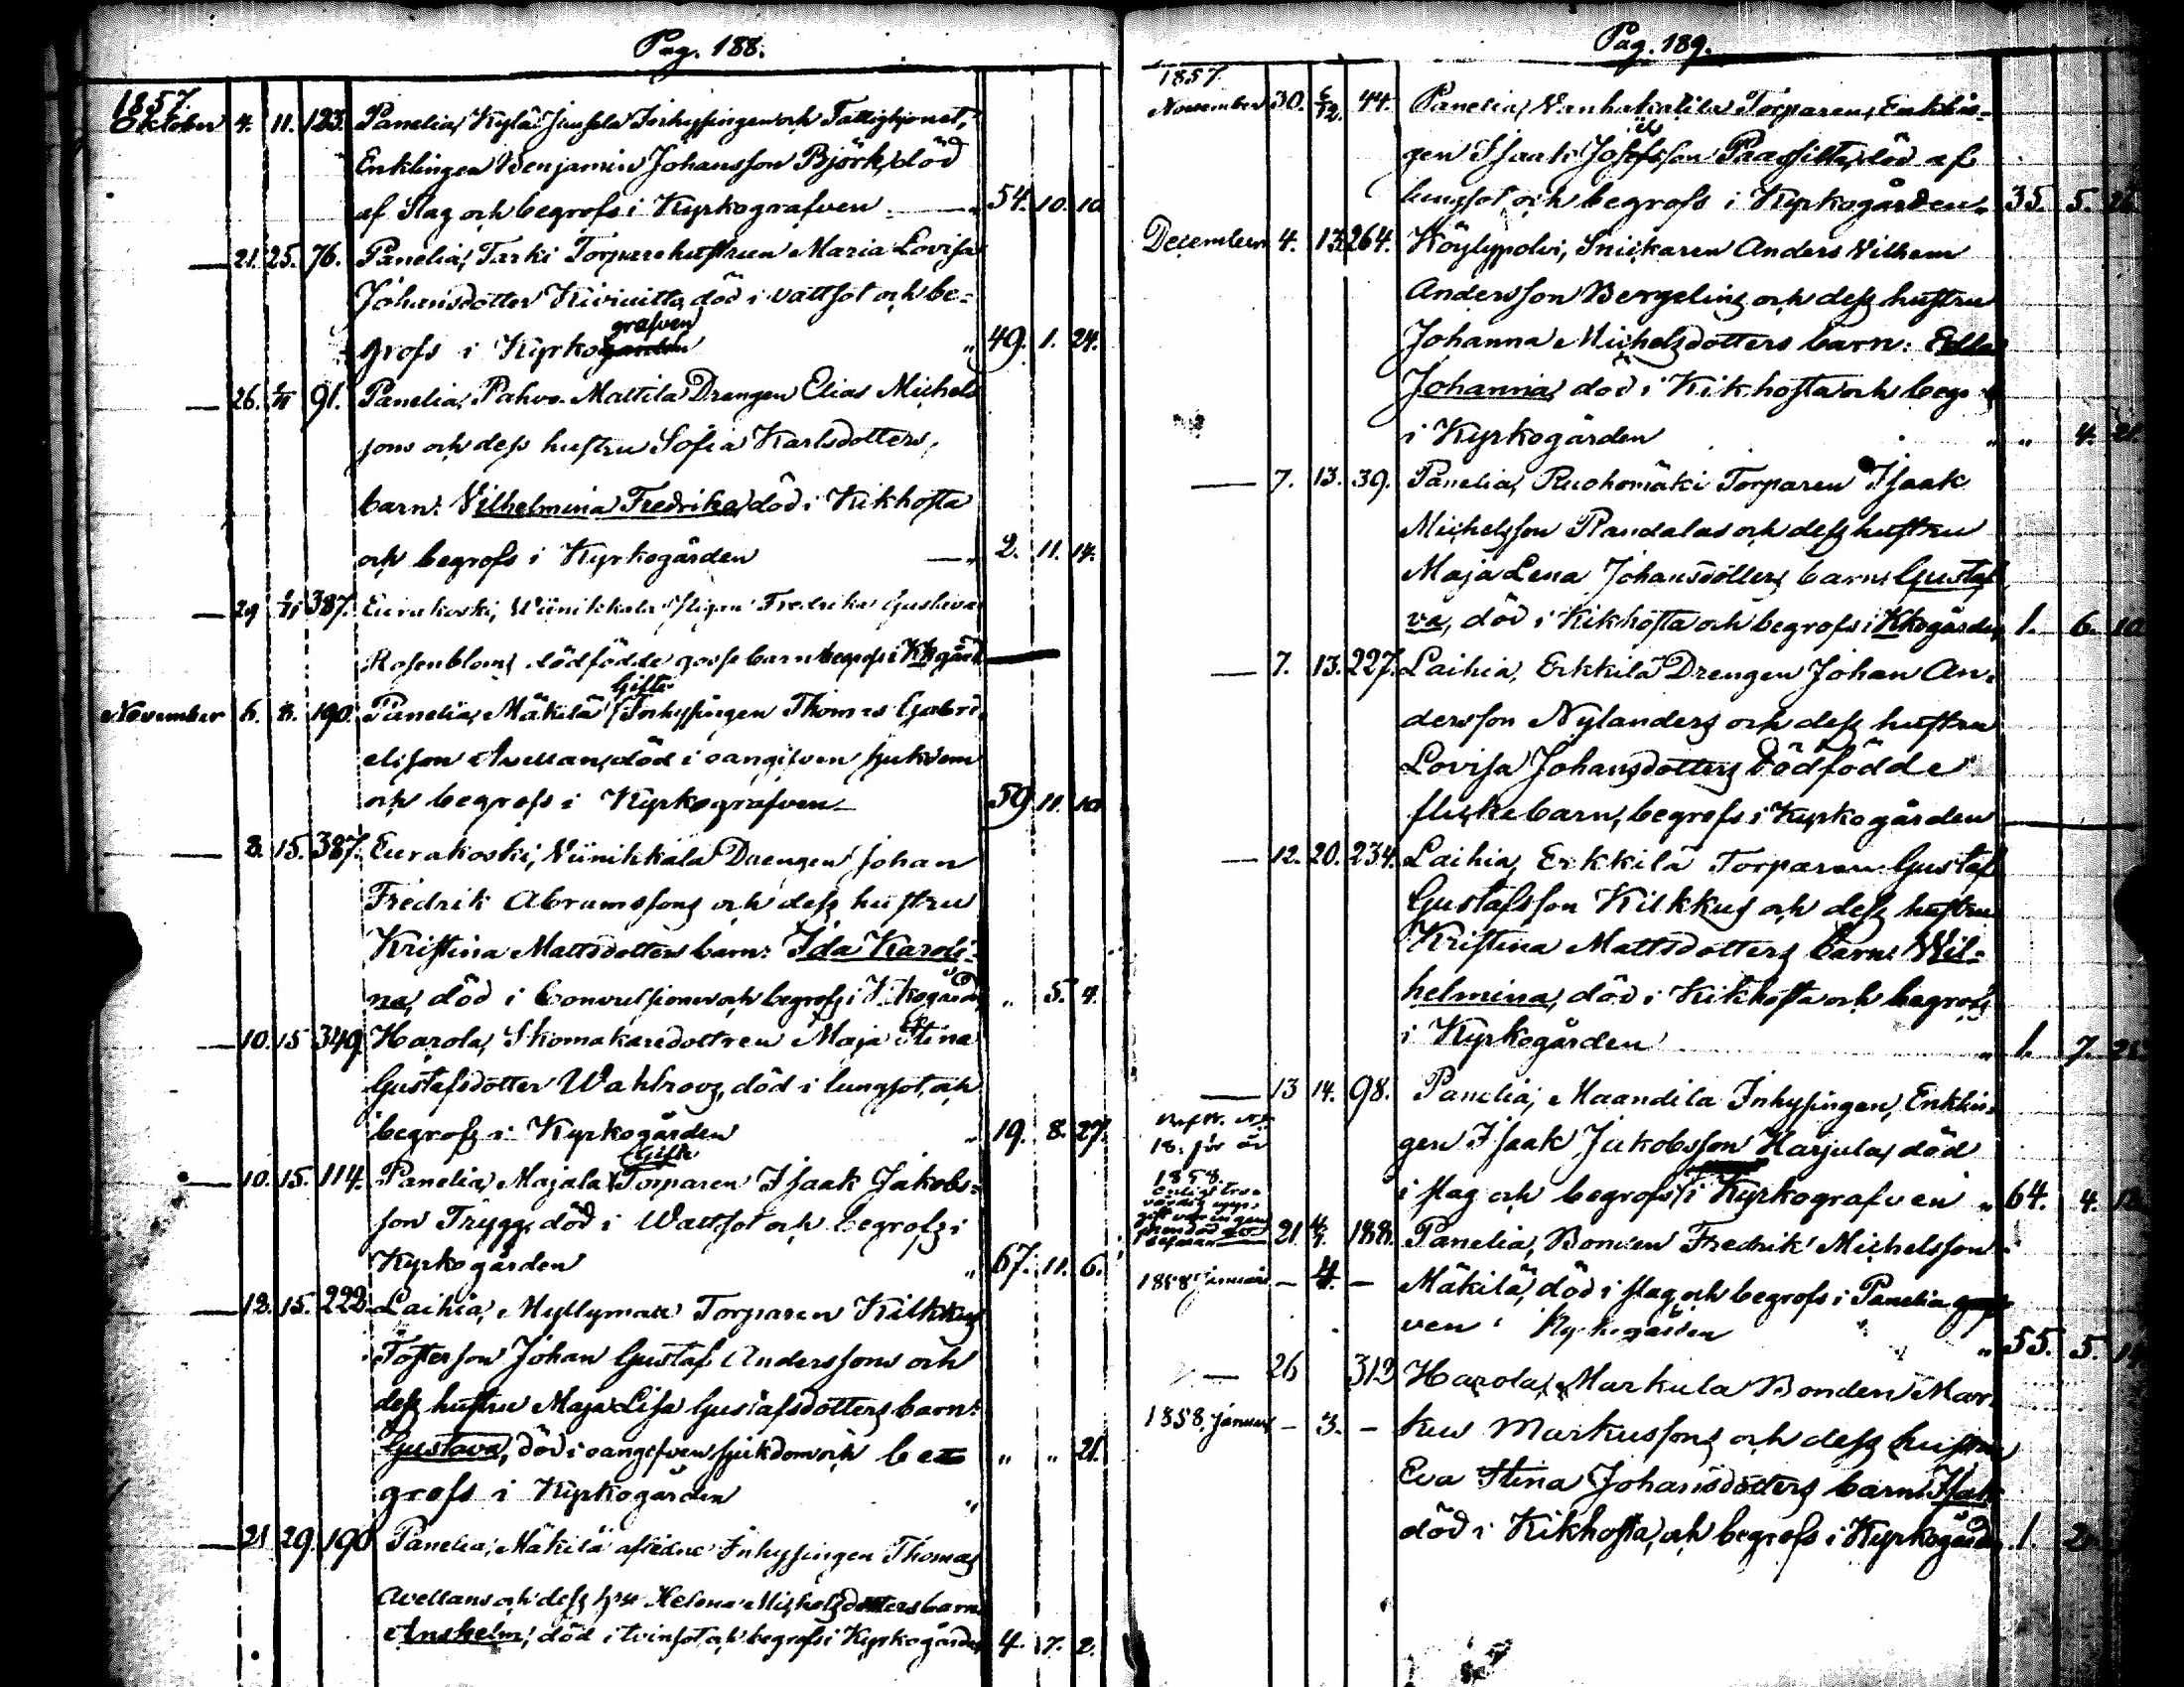 Pag. 188.
1857.
Oktober 4. 11. 123. Panelia, Kylä Inhysingen och Fattighjonet,
Enklingen Benjamin Johansson Björk, död
af Slag och begrofs i Kyrkografven 54. 10. 10
— 21. 25. 76. Panelia, Tarki Torparehustrun Maria Lovisa
Johansdotter Kiviniitty, död i vattsot och be-
grofs i Kyrkografven " 49. 1. 24.
— 26. 1/11 91. Panelia, Pahvo Mattila Drengen Elias Michels
sons och dess hustru Sofia Karlsdotters,
barn: Vilhelmina Fredrika, död i Kikhosta
och begrofs i Kyrkogården — " 2. 11. 14.
— 29 1/11 387. Eurakoski, Wiinikkala Pigan Fredrika Gustava
Rosenbloms dödfödde gosse barn begrofs i Kkgård —
November 6. 8. 190. Panelia, Mäkilä Gifte Inhysingen Thomas Gabri-
elsson Avellan, död i oangifven sjukdom
och begrofs i Kyrkografven 59 11. 10
— 8. 15. 387. Eurakoski, Viinikkala Drengen Johan
Fredrik Abramssons och dess hustru
Kristina Mattsdotters barn: Ida Karoli-
na, död i Convulsioner och begrofs i Kkogården " 5. 4.
— 10. 15 349. Harola, Skomakaredottren Maja Stina
Gustafsdotter Wahlroos, död i lungsot, och
begrofs i Kyrkogården " 19. 8. 27.
— 10. 15. 114. Panelia, Majala Gifte Torparen Isaak Jakobs-
son Trygg, död i Wattsot och begrofs i
Kyrkogården " 67. 11. 6.
— 12. 15. 222. Laihia, Myllymaa Torparen Kilkkus
Fosterson Johan Gustaf Anderssons och
dess hustru Maja Lisa Gustafsdotters barn:
Gustava, död i oangifven sjukdom och be= " " 21.
grofs i Kyrkogården "
— 21 29. 190 Panelia, Mäkilä aflidne Inhysingen Thomas
Avellans och dess h:u Helena Michelsdotters barn
Anshelm, död i tvinsot, och begrofs i Kyrkogården 4. 7. 2.
Pag. 189.
1857.
November 30. 6/12. 44. Panelia, Vanhakatila Torparen, Enklin-
gen Isaak Josefsson Paasilta, död af
lungsot och begrofs i Kyrkogården. 35. 5. 26.
December 4. 13. 264. Köylypolvi, Snickaren Anders Vilhem
Andersson Bergelins och dess hustru
Johanna Michelsdotters barn: Edla
Johanna, död i Kikhosta och begr
i Kyrkogården " " 4. 21.
— 7. 13. 39. Panelia, Ruohomäki Torparen Isaak
Michelsson Randalas och dess hustru
Maja Lena Johansdotters barn: Gusta-
va, död i Kikhosta och begrofs i Kkogården 1. 6. 10
— 7. 13. 227. Laihia, Erkkilä Drengen Johan An-
dersson Nylanders och dess hustru
Lovisa Johansdotters dödfödde
flickebarn, begrofs i Kyrkogården —
— 12. 20. 234. Laihia, Erkkilä Torparen Gustaf
Gustafsson Kilkkus och dess hustru
Kristina Mattsdotters barn: Wil-
helmina, död i Kikhosta och begrofs
i Kyrkogården " 1. 7. 21
— 13 14. 98. Panelia, Maandila Inhysingen, Enklin-
18. för år
gen Isaak Jakobsson Harjula, död
1858.
i slag och begrofs i Kyrkografven " 64. 4. 12
21 4/1. 188. Panelia, Bonden Fredrik Michelsson
1858 januari — 4. — Mäkilä, död i slag och begrofs i Panelia
ven i Kyrkogården " 55. 5. 14
— 26 313 Harola, Markula Bonden Mar-
1858. januari — 3. — kus Markussons och dess hustru
Eva Stina Johansdotters barn: Isak
död i Kikhosta, och begrofs i Kyrkogården 1. 2